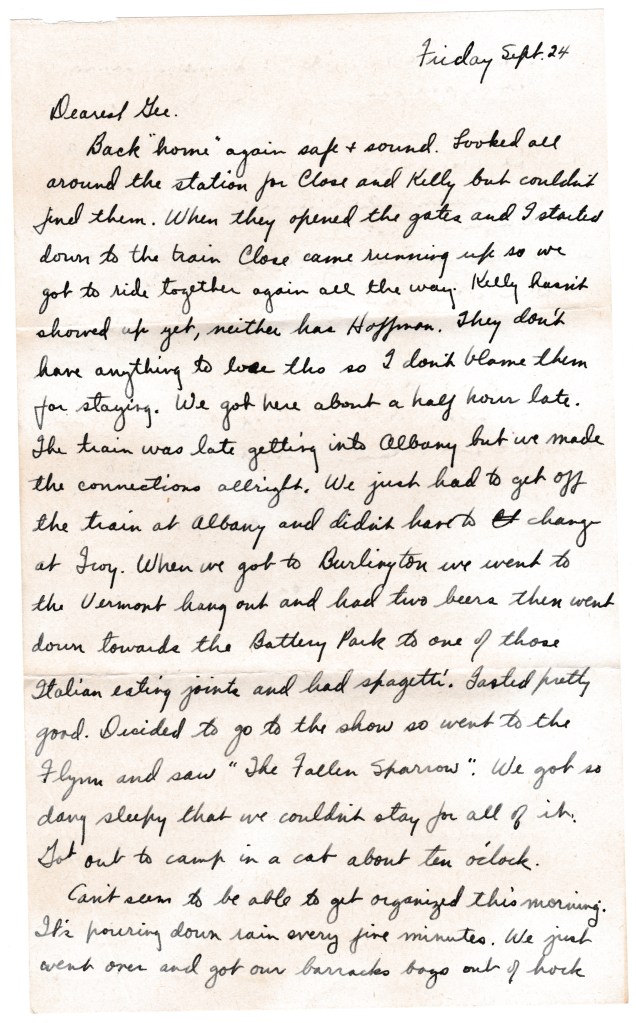 Friday Sept. 24
Dearest Gee.
Back "home" again safe + sound. Looked all
around the station for Close and Kelly but couldn't
find them. When they opened the gates and I started
down to the train Close came running up so we
got to ride together again all the way. Kelly hasn't
showed up yet, neither has Hoffman. They don't
have anything to lose tho so I don't blame them
for staying. We got here about a half hour late.
The train was late getting into Albany but we made
the connections allright. We just had to get off
the train at Albany and didn't have to change
at Troy. When we got to Burlington we went to
the Vermont hang out and had two beers then went
down towards the Battery Park to one of those
Italian eating joints and had spagetti. Tasted pretty
good. Decided to go to the show so went to the
Flynn and saw "The Fallen Sparrow". We got so
dang sleepy that we couldn't stay for all of it.
Got out to camp in a cab about ten o'clock.
Can't seem to be able to get organized this morning.
It's pouring down rain every five minutes. We just
went over and got our barracks bags out of hock